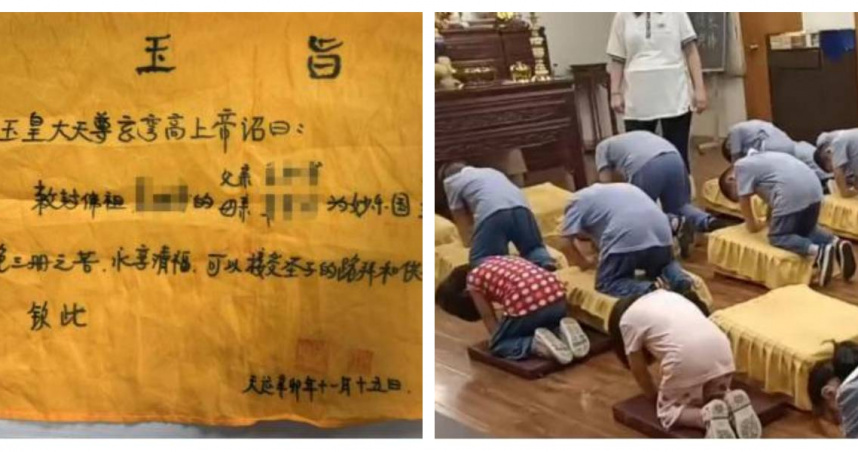 玉旨
玉皇大天尊玄穹高上帝诏曰：
教封佛祖 的 父亲 母亲 为妙乐国
之苦，永享清福，可以接受圣子的跪拜和供
钦此
天运辛卯年十一月十五日．